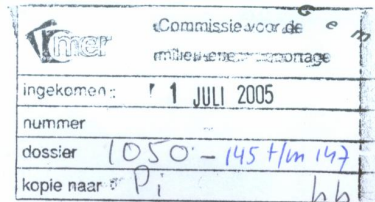 Gem
Commissie voor de
mer milieueffectrapportage
ingekomen : 1 JULI 2005
nummer
dossier 1050 - 145 t/m 147
kopie naar : Pi